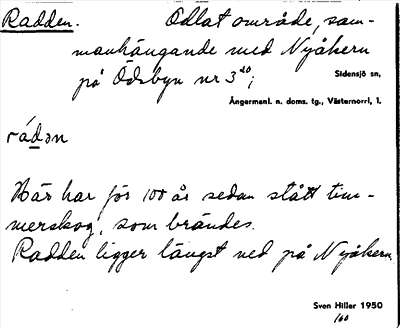 Radden. Odlat område, sam-
manhängande med Nyåkern
på Ödsbyn nr 3²⁰;
Sidensjö sn,
Ångermanl. n. doms. tg., Västernorrl. l.
rádən
Här har för 100 år sedan stått tim-
merskog, som brändes.
Radden ligger längst ned på Nyåkern.
Sven Hiller 1950
160